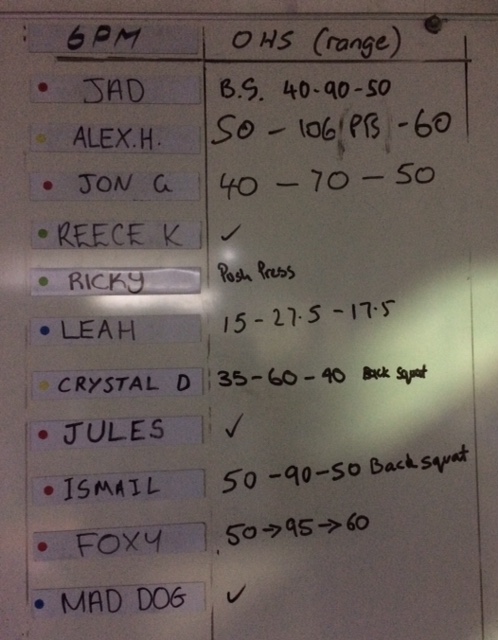 6PM OHS (range)
JAD B.S. 40-90-50
ALEX.H. 50 - 106 (PB) - 60
JON G 40 - 70 - 50
REECE K ✓
RICKY Push Press
LEAH 15 - 27.5 - 17.5
CRYSTAL D 35-60-40 Back Squat
JULES ✓
ISMAIL 50 -90-50 Back squat
FOXY 50→95→60
MAD DOG ✓